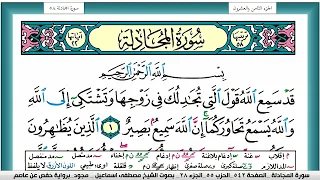 الجزء الثامن والعشرون
سورة المجادلة ٥٨
سُورَةُ المُجَادلَةِ
بِسْمِ اللَّهِ الرَّحْمَٰنِ الرَّحِيمِ
قَدْ سَمِعَ اللَّهُ قَوْلَ الَّتِي تُجَادِلُكَ فِي زَوْجِهَا وَتَشْتَكِي إِلَى اللَّهِ
وَاللَّهُ يَسْمَعُ تَحَاوُرَكُمَا إِنَّ اللَّهَ سَمِيعٌ بَصِيرٌ ١ الَّذِينَ يُظَاهِرُونَ
سورة المجادلة الصفحة ٥٤٢ الجزء ٢٨ بصوت الشيخ مصطفى اسماعيل مجود برواية حفص عن عاصم